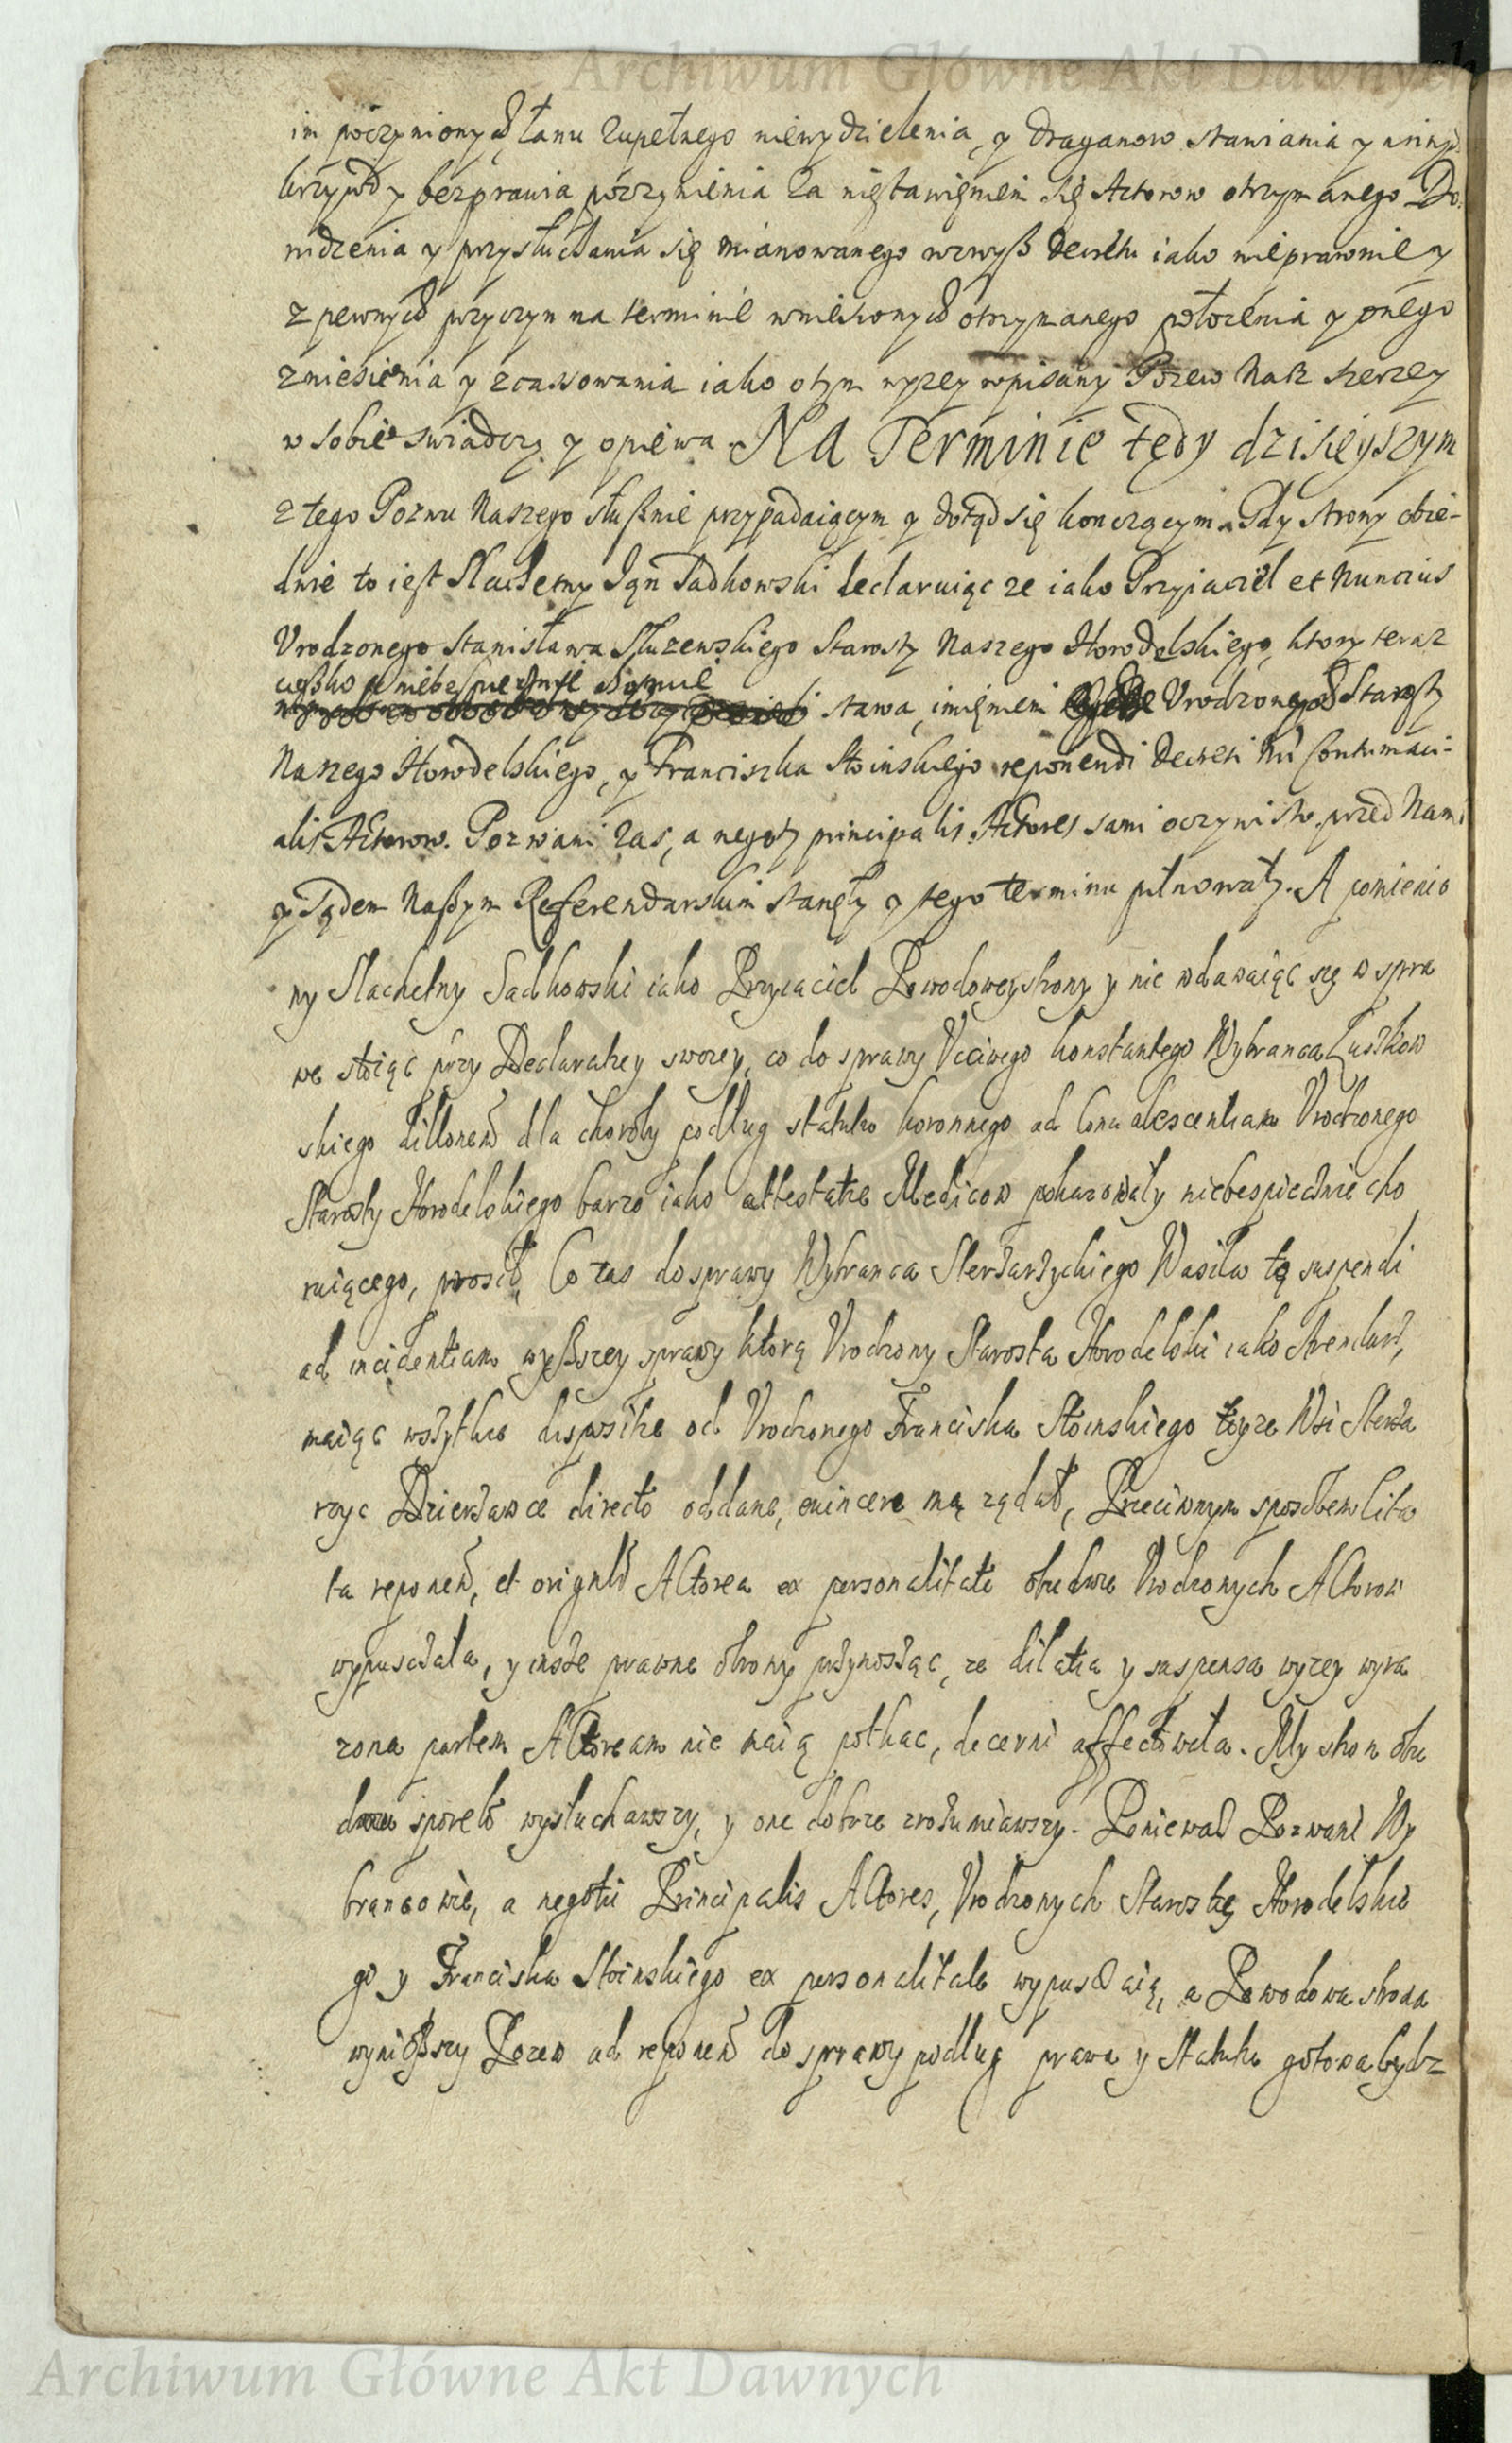 Archiwum Główne Akt Dawnych
im poczynionych łanu zupełnego niewydzielenia, y draganow stawiania y innych
krzywd y bezprawia poczynienia za niestawieniem się Actorow otrzymanego Do
widzenia y przysłuchania się mianowanego wzwyß Decretu iako nieprawnie y
z pewnych przyczyn na terminie wniesionych otrzymanego położenia y onego
zniesienia y zcassowania iako o tym wyzey wpisany Pozew Nasz szerzey
w sobie swiadczy y opiewa. NA Terminie tedy dzisieyszym
z tego Pozwu Naszego słußnie przypadaiącym y dotąd się konczącym. Gdy strony obie-
dwie to iest Slachetny Jan Sadkowski declaruiąc ze iako Przyiaciel et Nuncius
Vrodzonego Stanisława Słuzewskiego Starosty Naszego Horodelskiego, ktory teraz
cięßko y niebezpiecznie
stawa, imieniem Vrodzonych Starosty
Naszego Horodelskiego, y Franciszka Stoinskiego reponendi Decreti Nri Contumaci-
alis Actorow. Pozwani zas, a negoty principalis Actores sami oczywisto przed Nami
y Sądem Naßym Referendarskim stanęły y tego terminu pilnowały. A pomienio
ny Slachetny Sadkowski iako Przyiaciel Powodowey strony y nie wdawaiąc się w spra
we stoiąc przy Declaratiey swoiey, co do sprawy Vcciwego Konstantego Wybranca Luszkow
skiego dillonem dla choroby podług statutu koronnego ad Conualescentiam Vrodzonego
Starosty Horodelskiego barzo iako attestatie Medicow pokazowały niebespiecznie cho
ruiącego, prosił, Co zas do sprawy Wybranca Sterzarzyckiego Wasila tę suspendi
ad incidentiam wyßszey sprawy ktorą Vrodzony Starosta Horodelski iako Arendarz,
maiąc wszytkie dispositie od Vrodzonego Franciszka Stoinskiego teyze Wsi Sterza
rzyc Dzierzawce directo oddane, euincere ma ządał, Przeciwnym sposobem Cita
ta reponen, et orignls Actorea ex personalitate obudwu Vrodzonych Actorow
wypuszczała, y insze prawne obrony przynosząc, ze dilatia y suspensa wyzey wyra
zona partem Actoream nie maią potkac, decerni affectowała. My stron obu
dwu sporow wysłuchawszy, y one dobrze zrozumiawszy. Poniewaz Pozwani Wy
brancowie, a negotii Principalis Actores, Vrodzonych Starostę Horodelskie
go y Franciszka Stoinskiego ex personalitate wypuszczaią, a Powodowa strona
wyniosszy Pozew ad reponen do sprawy podług prawa y Statutu gotowa bydz
Archiwum Główne Akt Dawnych